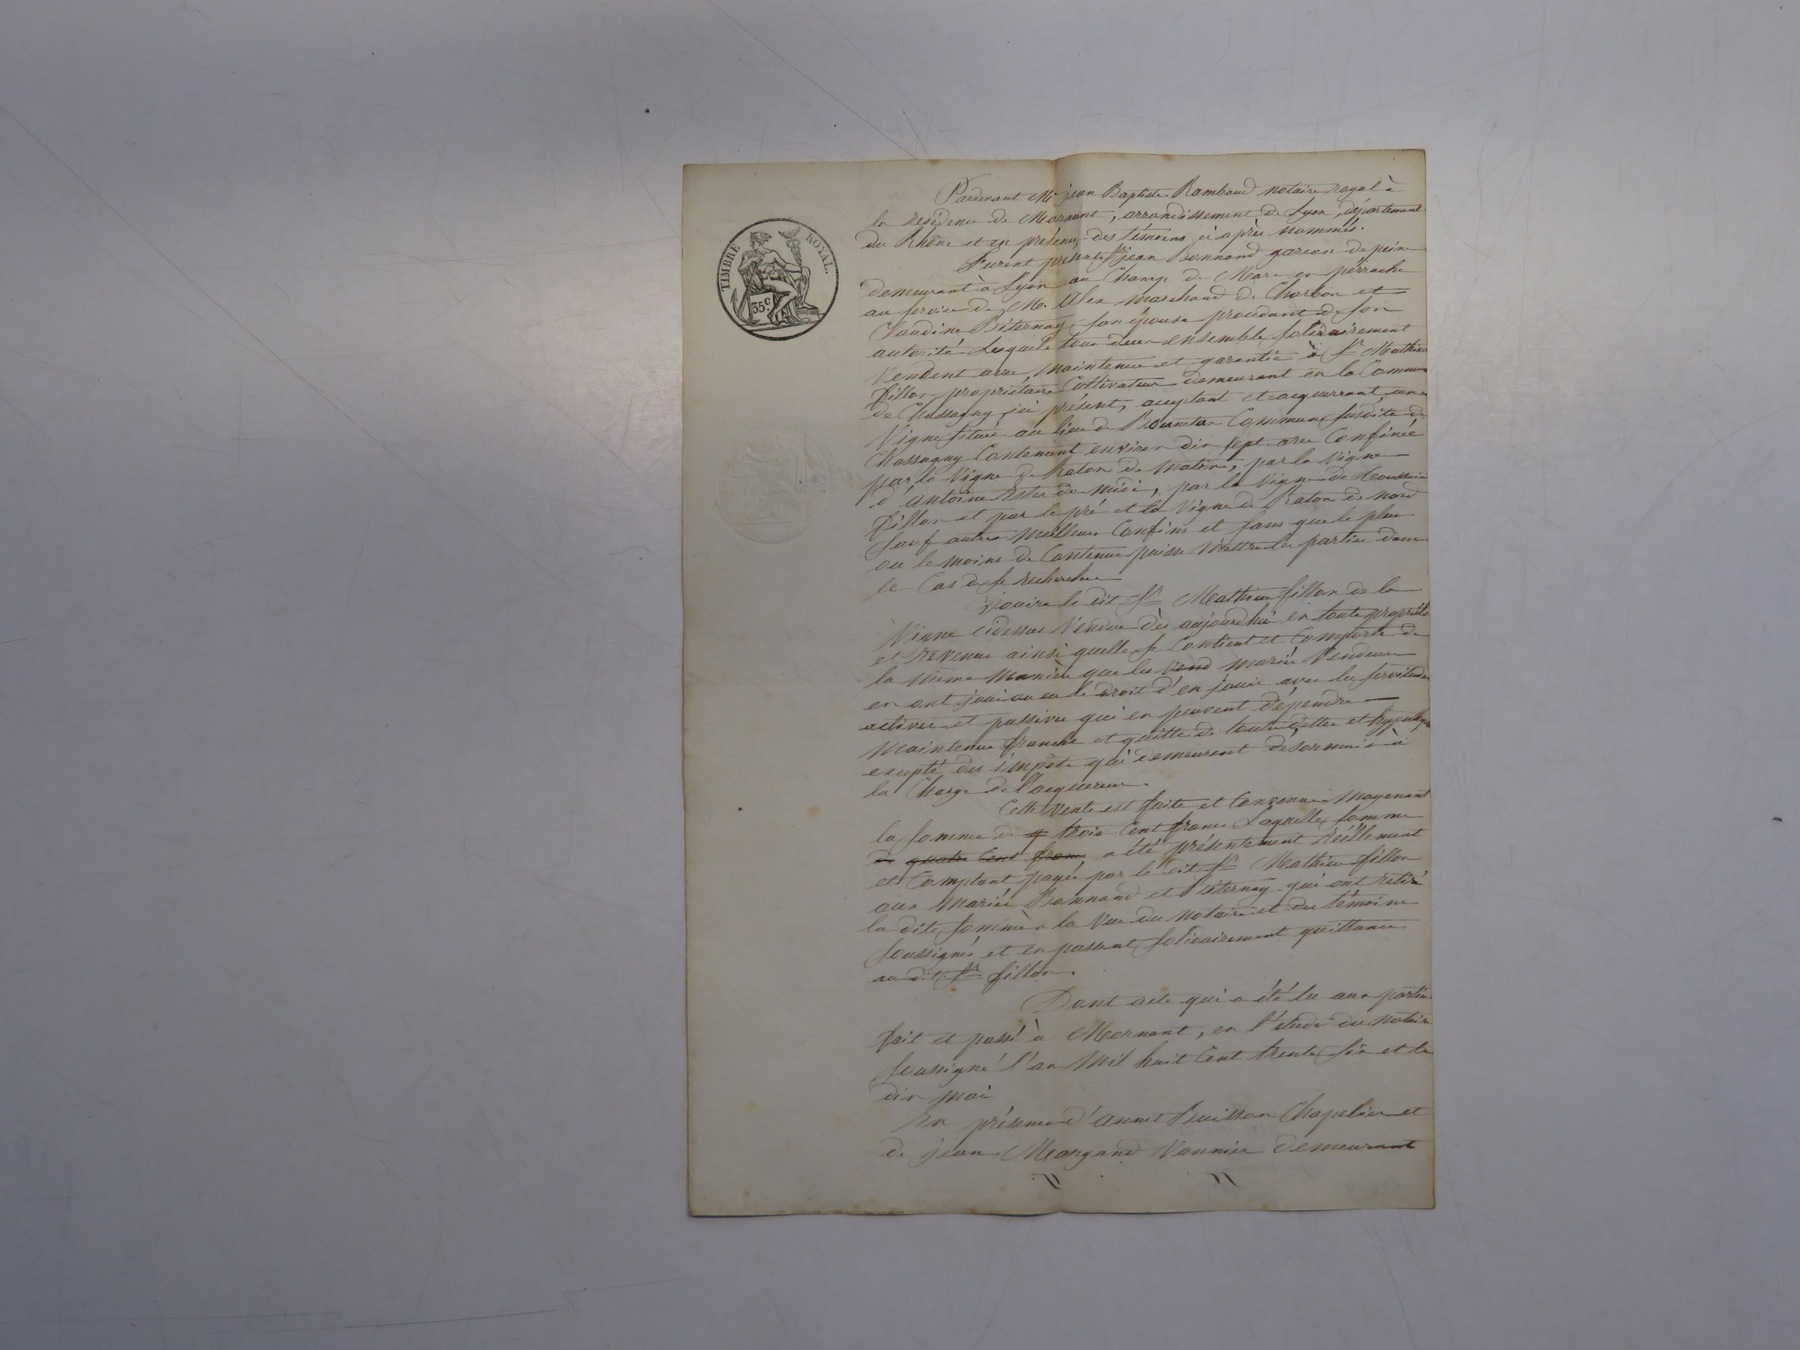 TIMBRE ROYAL.
35 c
Pardevant Me jean Baptiste Rambaud notaire royal à
la résidence de Mornant, arrondissement de Lyon, département
du Rhône et en présence des témoins ci après nommés.
Furent présents sr jean Bonnand garçon de peine
demeurant à Lyon au Champ de Mars en pérrache
au service de M. marchand de Charbon et
Claudine son épouse procédant de son
autorité Lesquels tous deux ensemble solidairement
Vendent avec maintenue et garantie à Sr Mathieu
fillon propriétaire Cultivateur demeurant en la Commune
de Chassagny ici présent, acceptant et acquerrant une
Vigne située au lieu de Commune susdite de
Chassagny Contenant environ dix sept ares Confinée
par la Vigne de Raton de matin, par la Vigne
d'antoine de midi, par la Vigne de
fillon et par le pré et la Vigne de Raton de nord
Sauf autres meilleurs Confins et sans que le plus
ou le moins de Contenue puisse mettre les parties dans
le Cas de se rechercher
jouira le dit Sr Mathieu fillon de la
Vigne cidessus Vendue dès aujourdhui en toute propriété
et revenus ainsi quelle se Contient et Comporte de
la même manière que les vend mariés Vendeurs
en ont joui ou eu le droit d'en jouir avec les servitudes
actives et passives qui en peuvent dépendre
Maintenue franche et quitte de toute dettes et hypothèques
excepté des impôts qui demeurent désormais à
la Charge de l'acquereur.
Cette Vente est faite et Convenue Moyenant
la somme de q trois Cent francs Laquelle somme
de quatre Cent francs a été présentement réellement
et Comptant payée par le dit Sr Mathieu fillon
aux Mariés Bonnand et qui ont retiré
la dite somme à la Vue du notaire et des témoins
soussignés et en passent solidairement quittance
au dit Sr fillon.
Dont acte qui a été lu aux parties
fait et passé à Mornant, en l'étude du notaire
soussigné l'an Mil huit Cent trente six et le
dix mai
En présence d'annet Buisson Chapelier et
de jean Margand Vannier demeurant